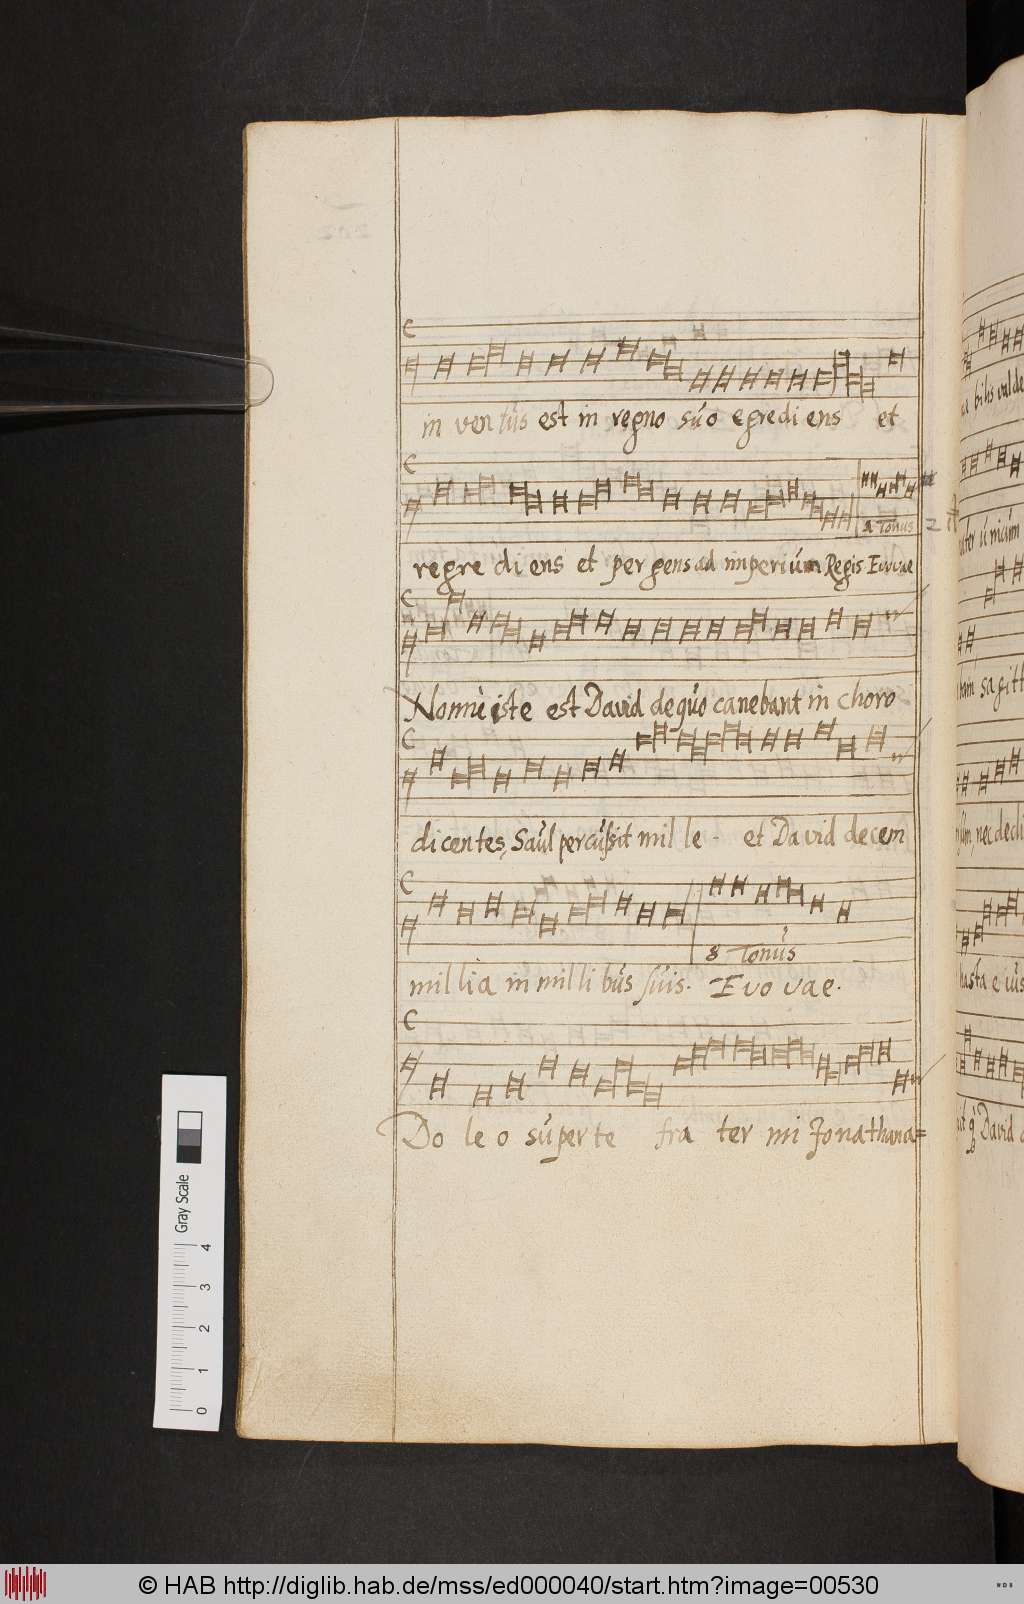 in ven tus est in regno suo egrediens et
2 Tonus
regre di ens et per gens ad imperium Regis Evovae
Nonne iste est David de quo canebant in choro
dicentes, Saul percussit mil le et David decem
8 Tonus
mil lia in mil li bus suis. Evo vae.
Do le o super te fra ter mi Jonathana=
bilis valde
ter unicum
bam sagitt
nec decli
hasta eius
David
Gray Scale
4
3
2
1
0
© HAB http://diglib.hab.de/mss/ed000040/start.htm?image=00530